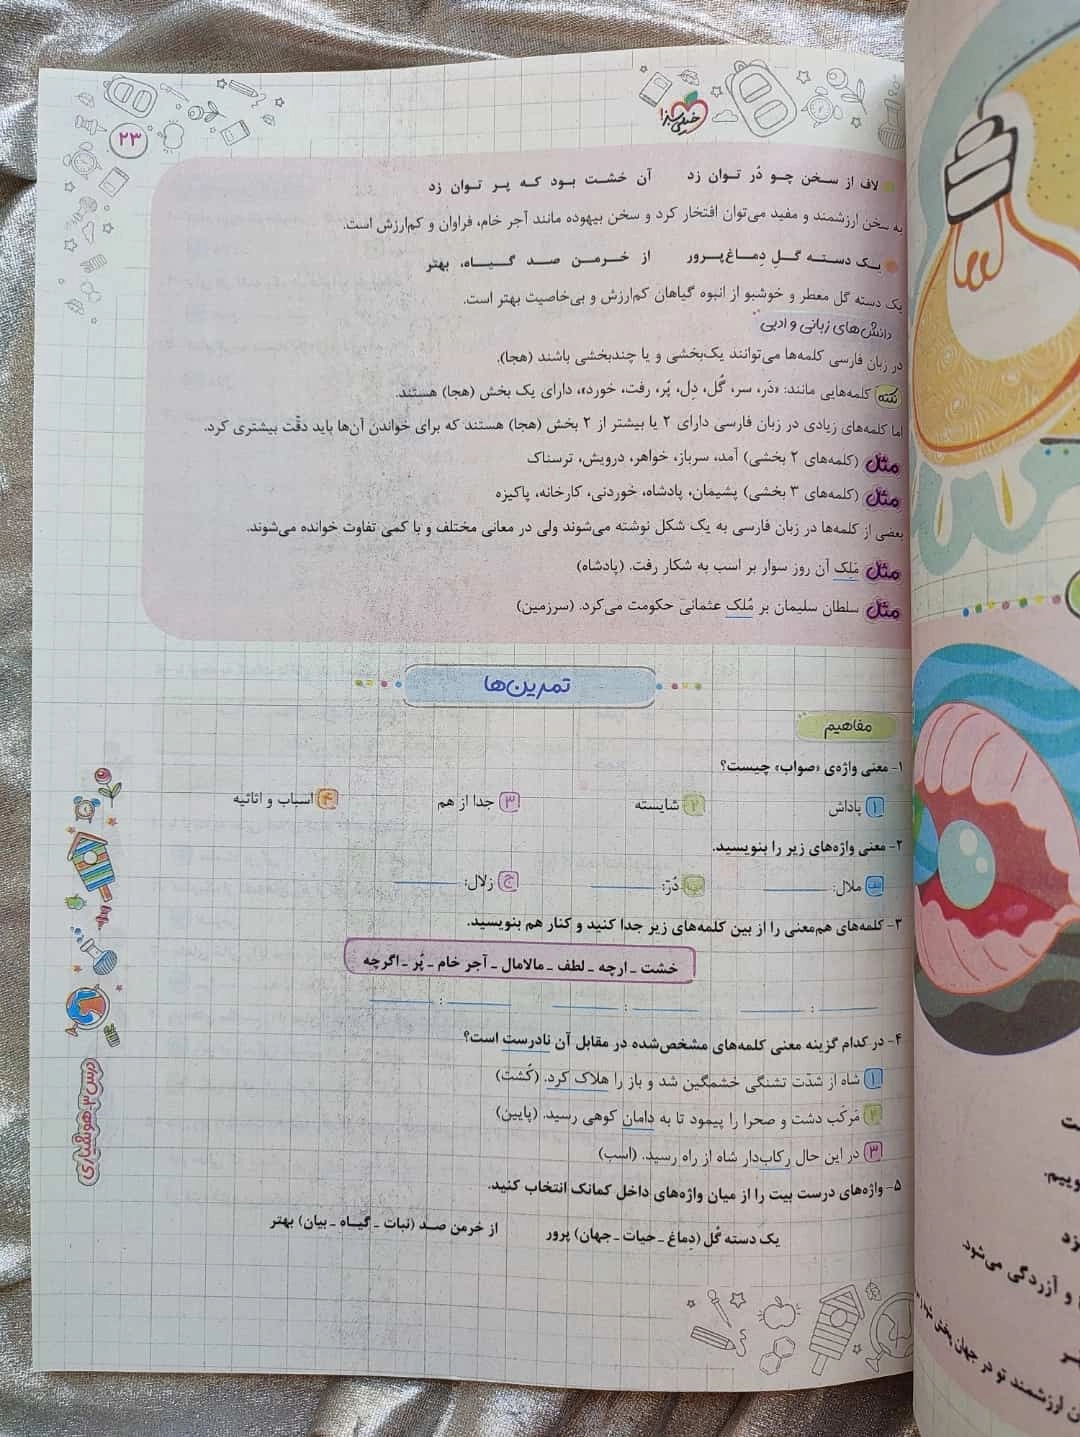 ۲۳
خیلی سبز
لاف از سخن چو دُر توان زد آن خشت بود که پر توان زد
به سخن ارزشمند و مفید می‌توان افتخار کرد و سخن بیهوده مانند آجر خام، فراوان و کم‌ارزش است.
یک دسته گلِ دِماغ‌پرور از خرمن صد گیاه، بهتر
یک دسته گل معطر و خوشبو از انبوه گیاهان کم‌ارزش و بی‌خاصیت بهتر است.
دانش‌های زبانی و ادبی
در زبان فارسی کلمه‌ها می‌توانند یک‌بخشی و یا چندبخشی باشند (هجا).
نکته کلمه‌هایی مانند: «دَر، سر، گُل، دِل، پُر، رفت، خورد»، دارای یک بخش (هجا) هستند.
اما کلمه‌های زیادی در زبان فارسی دارای ۲ یا بیشتر از ۲ بخش (هجا) هستند که برای خواندن آن‌ها باید دقّت بیشتری کرد.
مثل (کلمه‌های ۲ بخشی) آمد، سرباز، خواهر، درویش، ترسناک
مثل (کلمه‌های ۳ بخشی) پشیمان، پادشاه، خوردنی، کارخانه، پاکیزه
بعضی از کلمه‌ها در زبان فارسی به یک شکل نوشته می‌شوند ولی در معانی مختلف و با کمی تفاوت خوانده می‌شوند.
مثل مَلِک آن روز سوار بر اسب به شکار رفت. (پادشاه)
مثل سلطان سلیمان بر مُلک عثمانی حکومت می‌کرد. (سرزمین)
تمرین‌ها
مفاهیم
۱- معنی واژه‌ی «صواب» چیست؟
۱ پاداش ۲ شایسته ۳ جدا از هم ۴ اسباب و اثاثیه
۲- معنی واژه‌های زیر را بنویسید.
الف ملال: ب دُرّ: ج زلال:
۳- کلمه‌های هم‌معنی را از بین کلمه‌های زیر جدا کنید و کنار هم بنویسید.
خشت ـ ارچه ـ لطف ـ مالامال ـ آجر خام ـ پُر ـ اگرچه
: : :
۴- در کدام گزینه معنی کلمه‌های مشخص‌شده در مقابل آن نادرست است؟
۱ شاه از شدّت تشنگی خشمگین شد و باز را هلاک کرد. (کُشت)
۲ مَرکَب دشت و صحرا را پیمود تا به دامان کوهی رسید. (پایین)
۳ در این حال رکاب‌دار شاه از راه رسید. (اسب)
۵- واژه‌های درست بیت را از میان واژه‌های داخل کمانک انتخاب کنید.
یک دسته گُل (دِماغ ـ حیات ـ جهان) پرور از خرمن صد (نبات ـ گیاه ـ بیان) بهتر
درس ۳ هوشیاری
ست
وییم.
زد
و آزردگی می‌شود
ارزشمند تو در جهان پخش شود